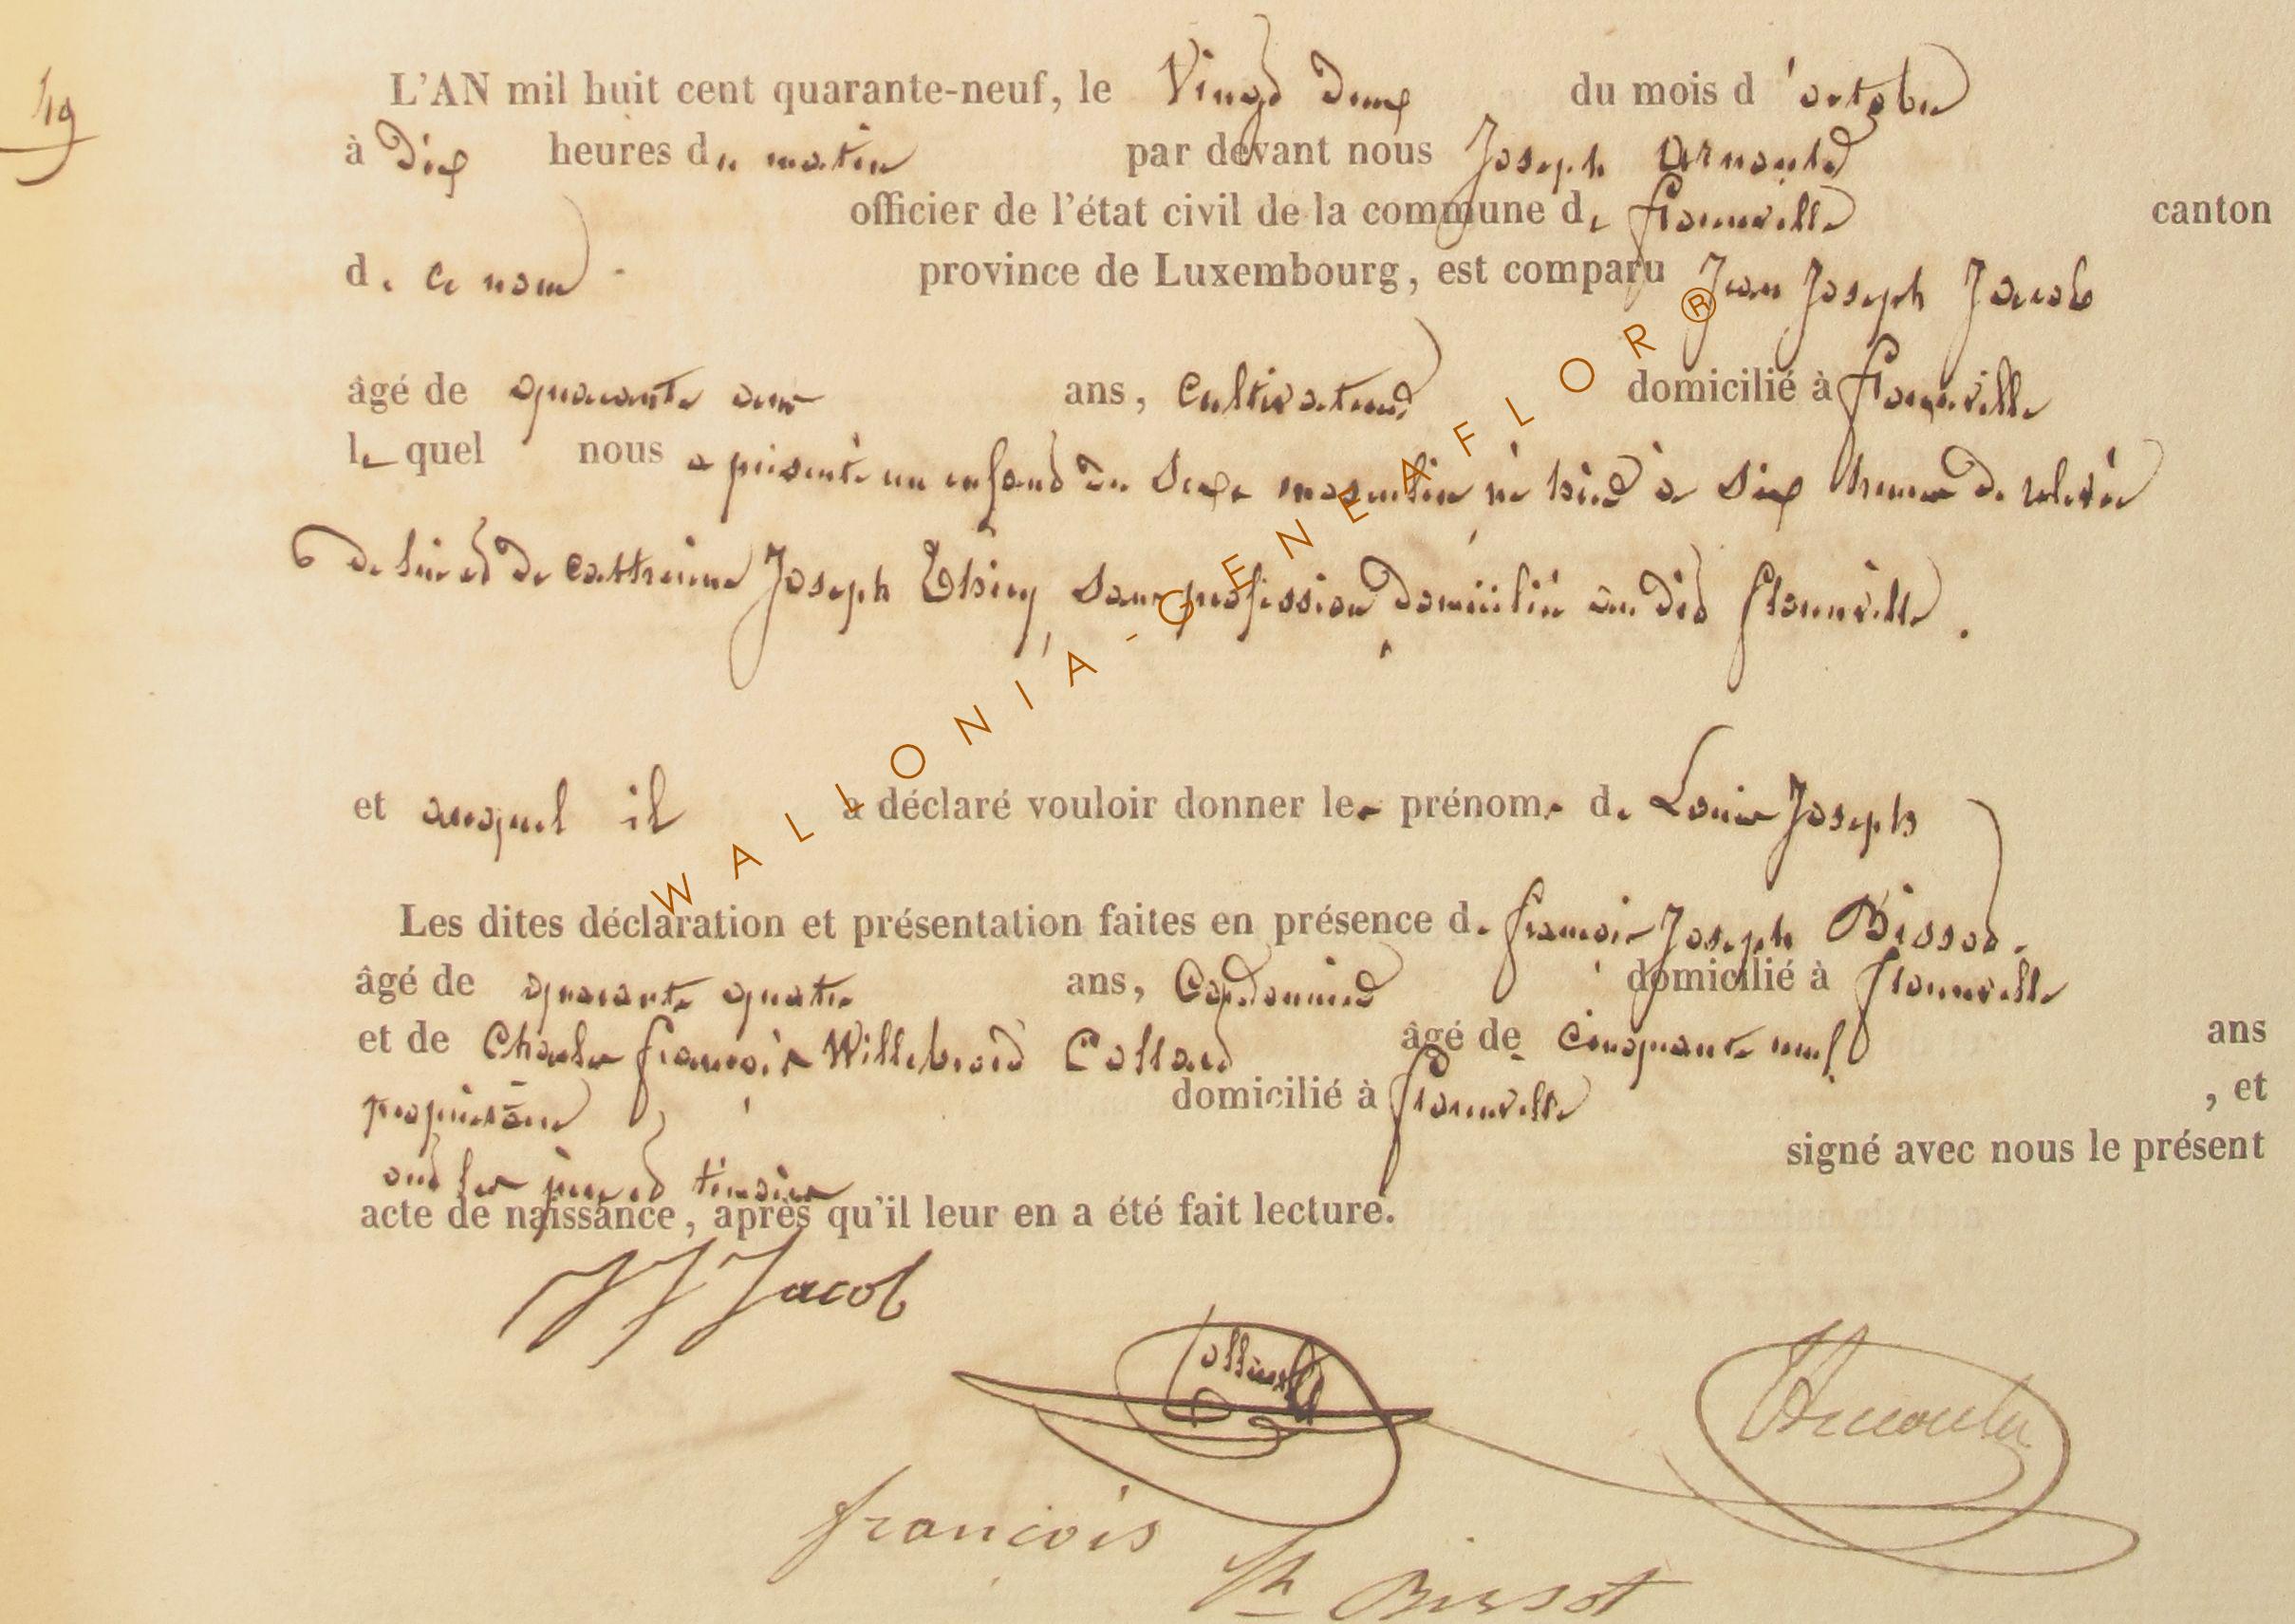 49
L'AN mil huit cent quarante-neuf, le Vingt deux du mois d'octobre
à dix heures du matin par devant nous Joseph Arnould
officier de l'état civil de la commune de florenville canton
de ce nom province de Luxembourg, est comparu Jean Joseph Jacob
âgé de quarante ans, Cultivateur domicilié à florenville
le quel nous a présenté un enfant du Sexe masculin né hier à Six heures de relevée
de lui et de Catherine Joseph Thiry, Sans profession domiciliée au dit florenville.
et auquel il a déclaré vouloir donner les prénoms de Louis Joseph
Les dites déclaration et présentation faites en présence de francois Joseph Bissot
âgé de quarante quatre ans, Cordonnier domicilié à florenville
et de Charles francois Willebrord Collard âgé de cinquante neuf ans
propriétaire domicilié à florenville, et
ont les père et témoins signé avec nous le présent
acte de naissance, après qu'il leur en a été fait lecture.
JJ Jacob
Collard
Arnould
francois
Jh Bissot
WALLONIA-GENEAFLOR®